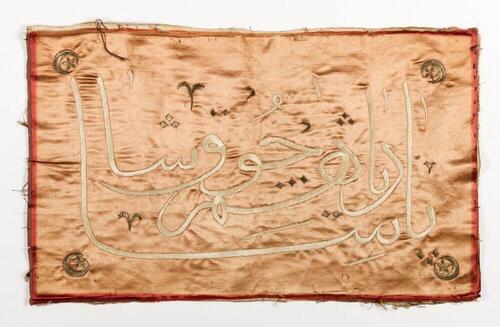 پادشاهم چوق یشا